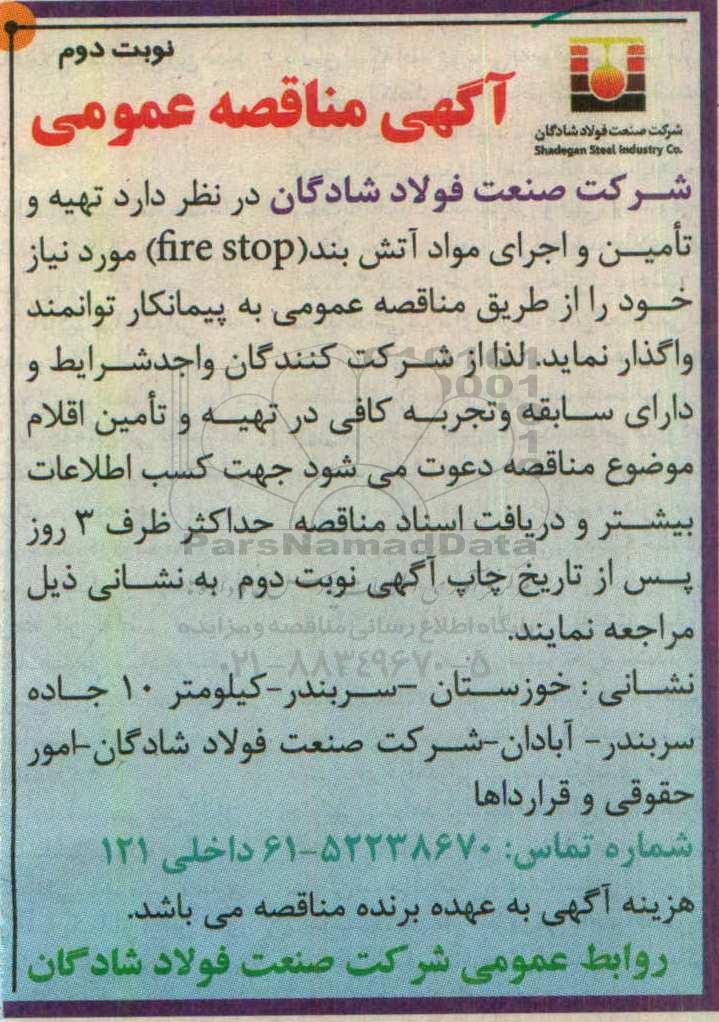 نوبت دوم
آگهی مناقصه عمومی
شرکت صنعت فولاد شادگان
Shadegan Steel Industry Co.
شرکت صنعت فولاد شادگان در نظر دارد تهیه و
تأمین و اجرای مواد آتش بند(fire stop) مورد نیاز
خود را از طریق مناقصه عمومی به پیمانکار توانمند
واگذار نماید. لذا از شرکت کنندگان واجدشرایط و
دارای سابقه وتجربه کافی در تهیه و تأمین اقلام
موضوع مناقصه دعوت می شود جهت کسب اطلاعات
بیشتر و دریافت اسناد مناقصه حداکثر ظرف ۳ روز
پس از تاریخ چاپ آگهی نوبت دوم به نشانی ذیل
مراجعه نمایند.
نشانی : خوزستان -سربندر-کیلومتر ۱۰ جاده
سربندر- آبادان-شرکت صنعت فولاد شادگان-امور
حقوقی و قراردادها
شماره تماس: ۵۲۲۳۸۶۷۰-۰۶۱ داخلی ۱۲۱
هزینه آگهی به عهده برنده مناقصه می باشد.
روابط عمومی شرکت صنعت فولاد شادگان
ParsNamadData
پایگاه اطلاع رسانی مناقصه و مزایده
۰۲۱-۸۸۳۴۹۶۷۰-۵